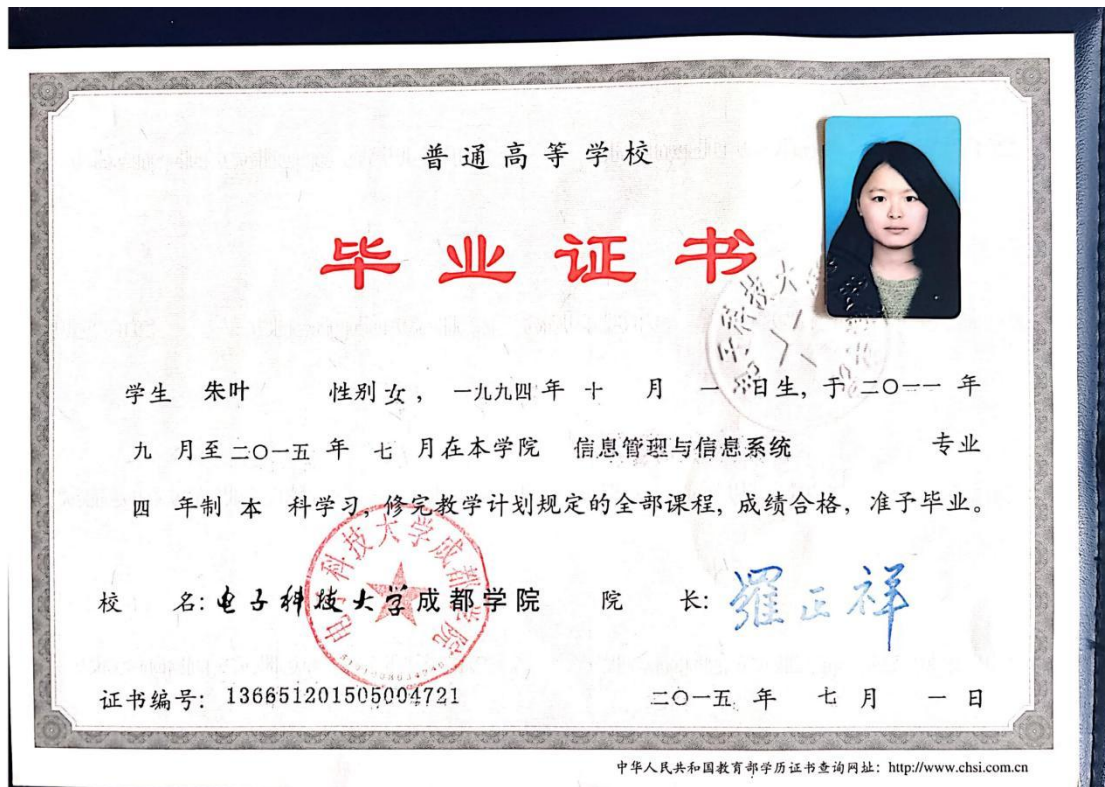 普通高等学校
毕业证书
学生 朱叶 性别女，一九九四年 十 月 一 日生，于二〇一一 年
九 月至二〇一五 年 七 月在本学院 信息管理与信息系统 专业
四 年制 本 科学习，修完教学计划规定的全部课程，成绩合格，准予毕业。
电子科技大学成都学院
校 名：电子科技大学成都学院 院 长：罗正祥
证书编号：136651201505004721 二〇一五 年 七 月 一 日
中华人民共和国教育部学历证书查询网址：http://www.chsi.com.cn